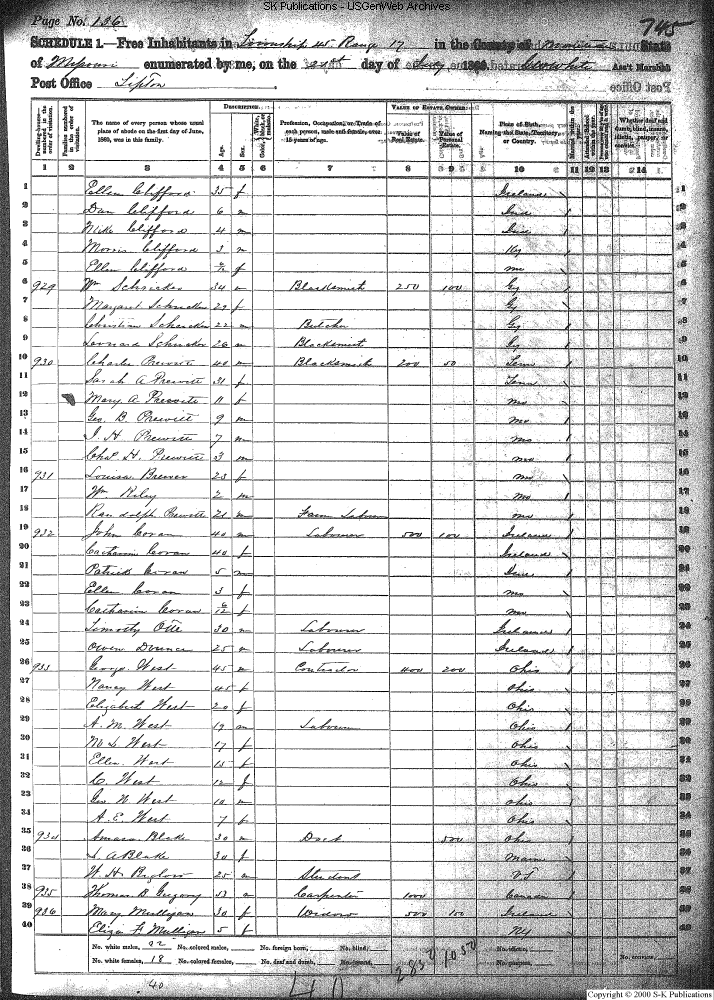 SK Publications - USGenWeb Archives
Page No. 136
745
SCHEDULE 1.—Free Inhabitants in Township 45 Range 17 in the County of State
of Missouri enumerated by me, on the day of 1860. Ass't Marshal
Post Office Tipton
Dwelling-houses—numbered in the order of visitation.
Families numbered in the order of visitation.
The name of every person whose usual place of abode on the first day of June, 1860, was in this family.
DESCRIPTION.
Age.
Sex.
White, black, or mulatto.
Profession, Occupation, or Trade of each person, male and female, over 15 years of age.
VALUE OF ESTATE OWNED.
Value of Real Estate.
Value of Personal Estate.
Place of Birth, Naming the State, Territory, or Country.
Whether deaf and dumb, blind, insane, idiotic, pauper, or convict.
1 2 3 4 5 6 7 8 9 10 11 12 13 14
1 Ellen Clifford 35 f Ireland
2 Dan Clifford 6 m Ind
3 Mike Clifford 4 m Ind
4 Morris Clifford 3 m Ky
5 Ellen Clifford f Mo
6 929 Wm 34 m Blacksmith 250 100 Gy
7 Margaret 29 f Gy
8 Christian 22 m Butcher Gy
9 Leonard 26 m Blacksmith Gy
10 930 Charles Prewitt 40 m Blacksmith 200 50 Tenn
11 Sarah A Prewitt 31 f Tenn
12 Mary A. Prewitt 11 f Mo
13 Geo. B. Prewitt 9 m Mo
14 J. H. Prewitt 7 m Mo
15 Chas H. Prewitt 3 m Mo
16 931 Louisa Brewer 23 f Mo
17 Wm Riley 2 m Mo
18 Randolph Prewitt 21 m Farm Laborer Mo
19 932 John Coran 40 m Labourer 500 100 Ireland
20 Catharin Coran 40 f Ireland
21 Patrick Coran 5 m
22 Ellen Coran 3 f Mo
23 Catharin Coran f Mo
24 Timothy Otte 30 m Labourer Ireland
25 Owen 25 m Labourer Ireland
26 933 George West 45 m Contractor 400 200 Ohio
27 Nancy West 45 f Ohio
28 Elizabeth West 20 f Ohio
29 A. M. West 19 m Labourer Ohio
30 West 17 f Ohio
31 Ellen West 15 f Ohio
32 C. West 12 f Ohio
33 Geo W West 10 m Ohio
34 A. E. West 7 f Ohio
35 934 Amasa Blake 30 m Doct 500 Ohio
36 L. A Blake 30 f Maine
37 W. H. Biglow 25 m Student VT
38 935 Thomas B Gregory 53 m Carpenter 1000 Canada
39 936 Mary Mulligan 30 f Widow 500 100 Ireland
40 Eliza F Mulligan 5 f NY
No. white males, 22 No. colored males, No. foreign born, No. blind,
No. white females, 18 No. colored females, No. deaf and dumb, No. insane,
No. idiotic, No. paupers, No. convicts,
2850 1050
40
40
Copyright © 2000 S-K Publications